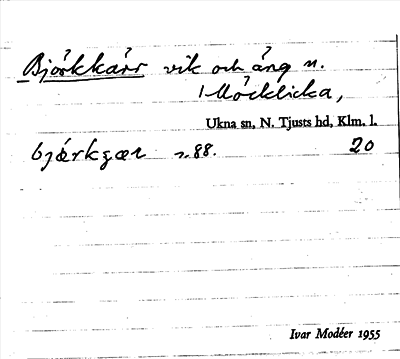 Björkkärr vik och äng n.
Möcklicka,
Ukna sn, N. Tjusts hd, Klm. l.
bjǽrkʒær n. 88. 20
Ivar Modéer 1955